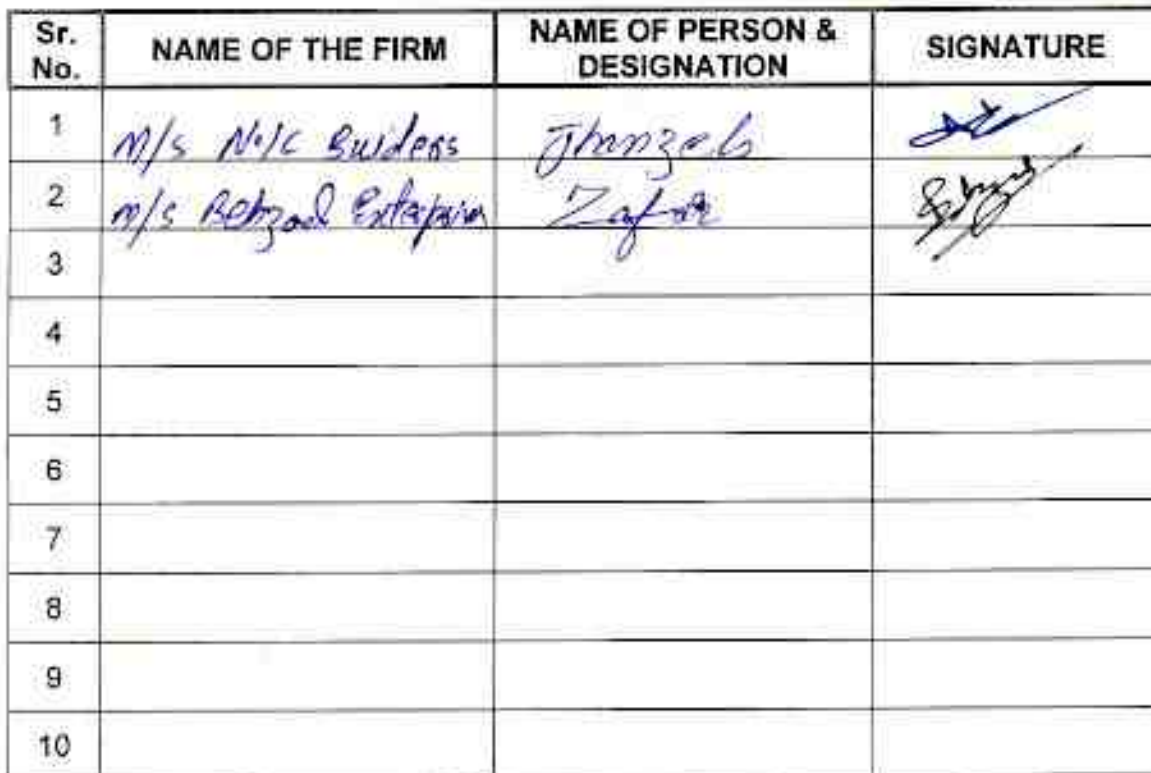 Sr. No. NAME OF THE FIRM NAME OF PERSON & DESIGNATION SIGNATURE
1 M/s N.K Buiders Jhanzeb
2 M/s Behzad Zafar
3
4
5
6
7
8
9
10